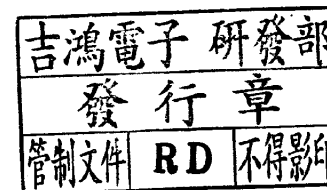 吉鴻電子 研發部
發行章
管制文件 RD 不得影印